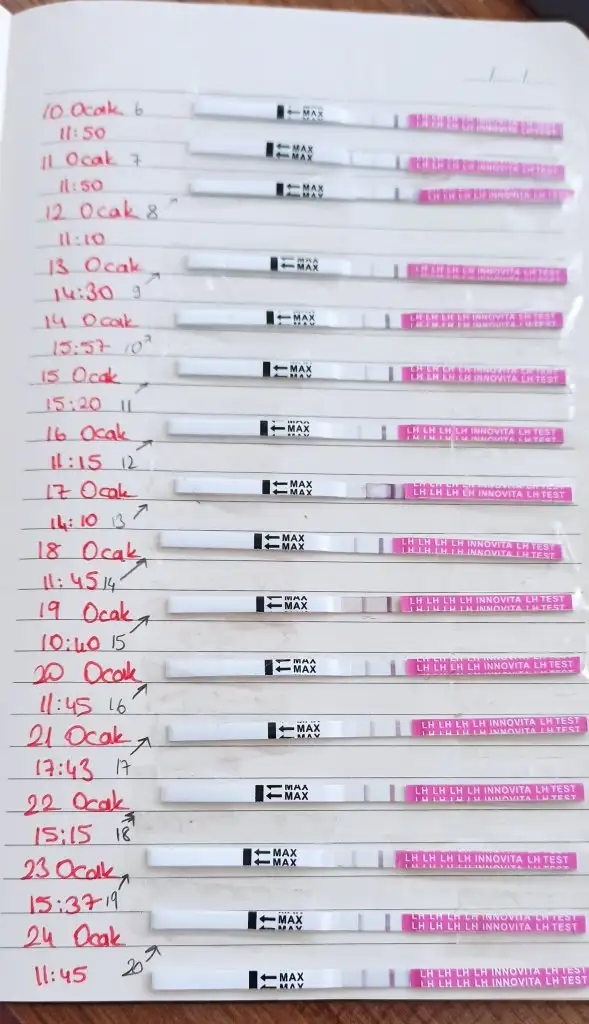 / /
10 Ocak 6
← MAX
LH LH LH LH INNOVITA LH TEST
11:50
11 Ocak 7
← MAX
← MAX
LH LH LH LH INNOVITA LH TEST
11:50
← MAX
← MAX
LH LH LH LH INNOVITA LH TEST
12 Ocak 8
11:10
13 Ocak
← MAX
LH LH LH LH INNOVITA LH TEST
14:30 9
14 Ocak
← MAX
LH LH LH LH INNOVITA LH TEST
15:57 10
15 Ocak
← MAX
LH LH LH LH INNOVITA LH TEST
15:20 11
16 Ocak
← MAX
LH LH LH LH INNOVITA LH TEST
11:15 12
17 Ocak
← MAX
LH LH LH LH INNOVITA LH TEST
14:10 13
18 Ocak
← MAX
← MAX
LH LH LH LH INNOVITA LH TEST
11:45 14
19 Ocak
← MAX
← MAX
LH LH LH LH INNOVITA LH TEST
10:40 15
20 Ocak
← MAX
LH LH LH LH INNOVITA LH TEST
11:45 16
21 Ocak
← MAX
LH LH LH LH INNOVITA LH TEST
17:43 17
22 Ocak
← MAX
← MAX
LH LH LH LH INNOVITA LH TEST
15:15 18
23 Ocak
← MAX
← MAX
LH LH LH LH INNOVITA LH TEST
15:37 19
24 Ocak
← MAX
← MAX
LH LH LH LH INNOVITA LH TEST
11:45 20
← MAX
← MAX
LH LH LH LH INNOVITA LH TEST